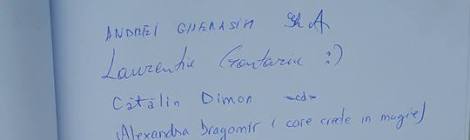 ANDREI GHERASIM
Laurentiu :)
Cătălin Dimon -cd-
Alexandra Dragomir (care crede in magie)